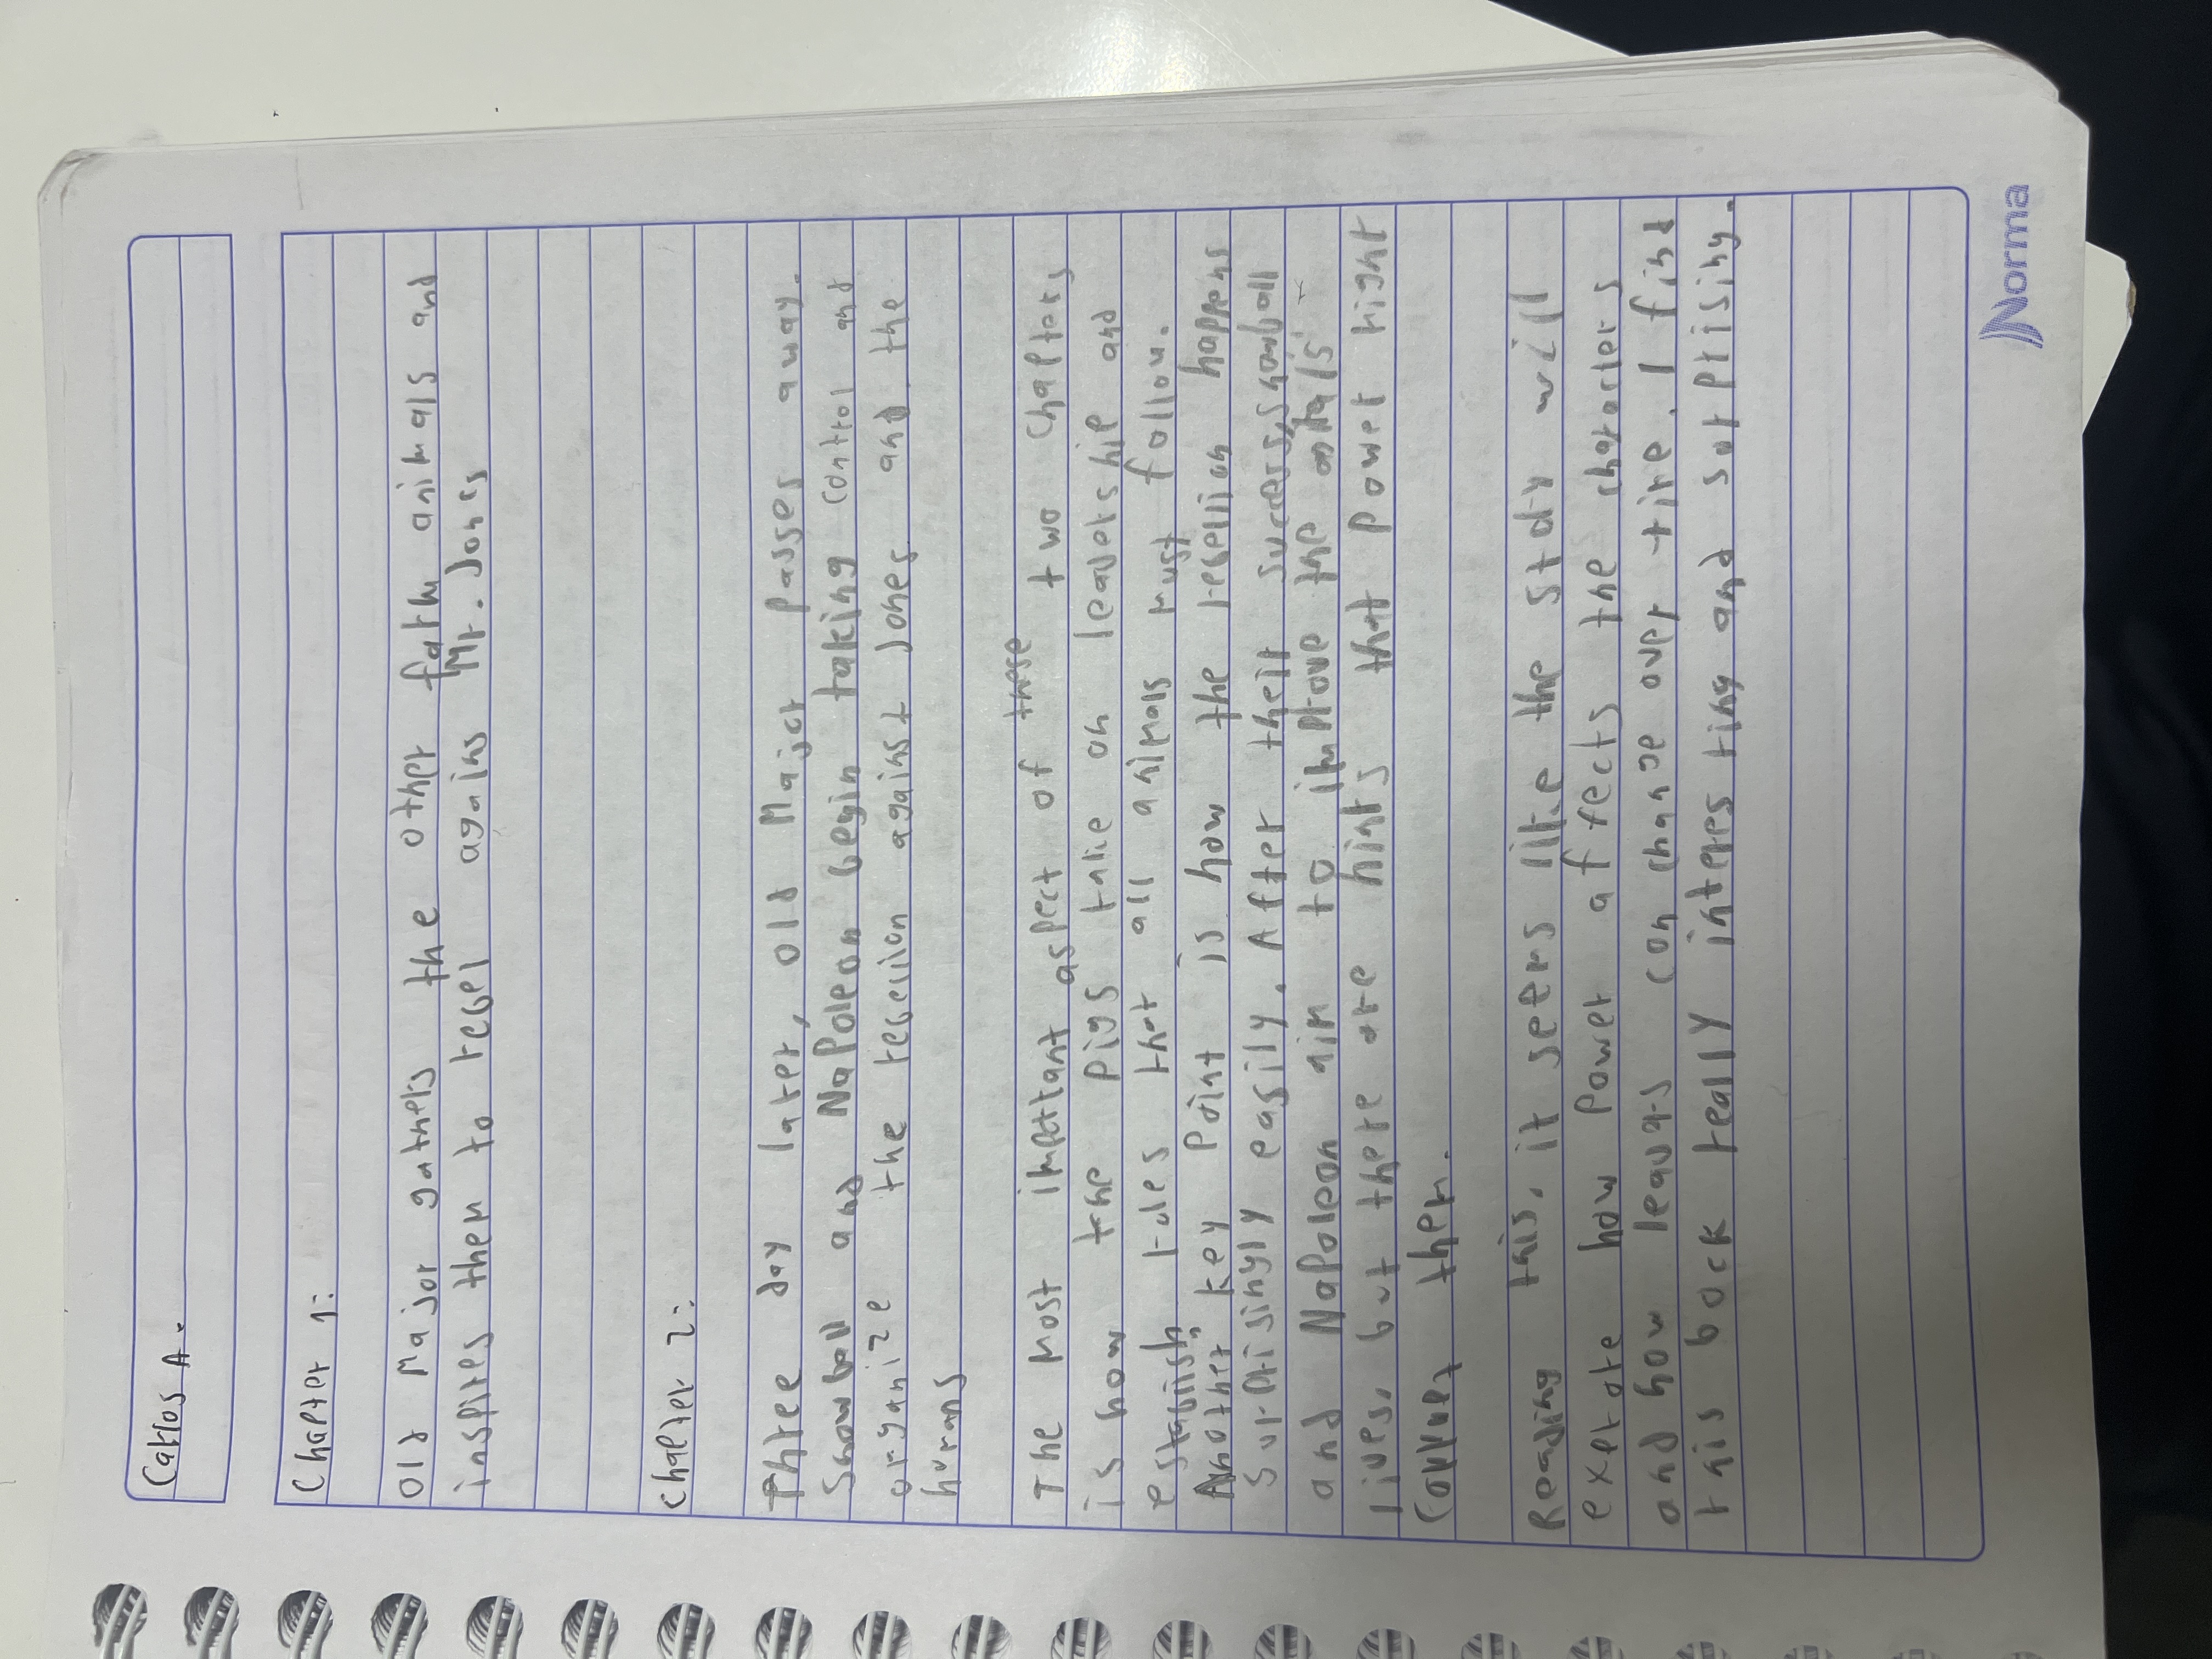 Carlos A.
Chapter 1:
Old Major gathers the other farm animals and
inspires them to rebel agains Mr. Jones
Chapter 2:
Three day later, old Major passes away.
Snowball and Napoleon begin taking control and
organize the rebelion against Jones and the
humans
The most important aspect of these two chapters
is how the pigs take on leadership and
establish rules that all animals must follow.
Another key point is how the rebellion happens
surprisingly easily. After their success, snowball
and Napoleon aim to improve the animals'
lives, but there are hints that power might
corrupt them.
Reading this, it seems like the story will
explore how power affects the characters
and how leaders can change over time. I find
this book really interesting and surprising.
Norma